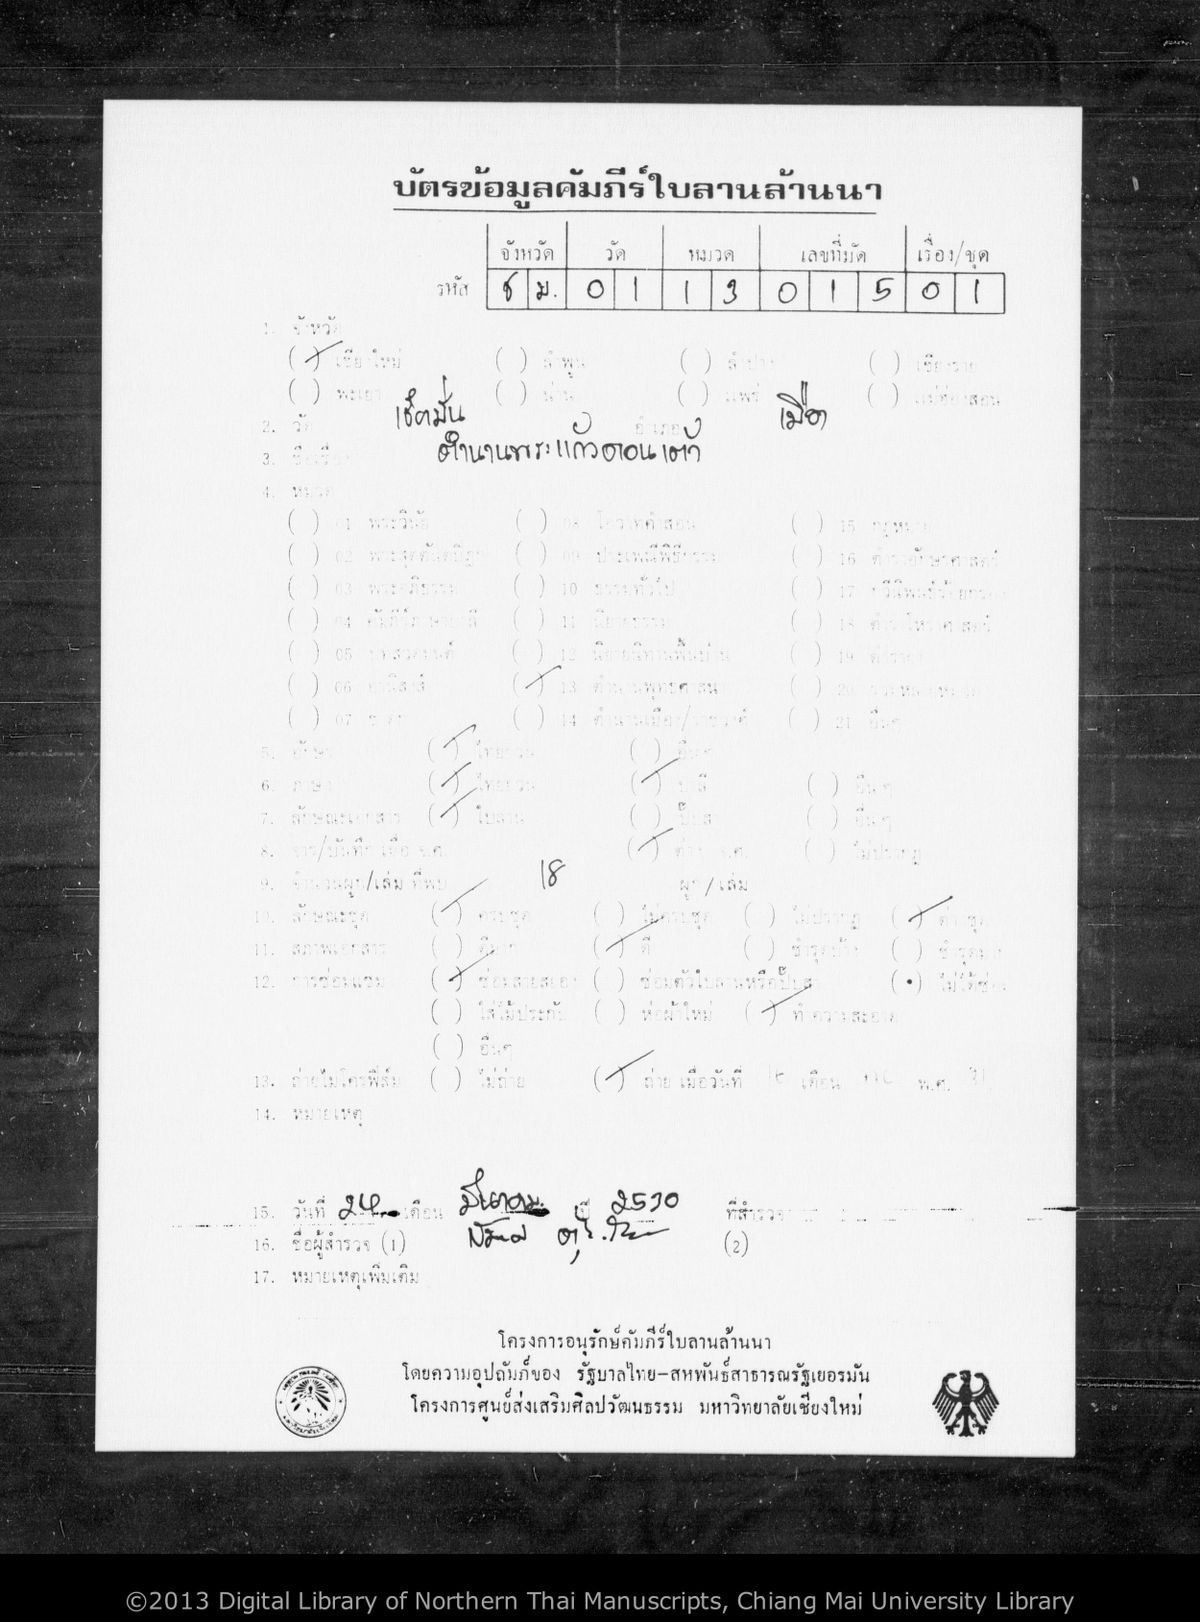 บัตรข้อมูลคัมภีร์ใบลานล้านนา
จังหวัด วัด หมวด เลขที่มัด เรื่อง/ชุด
รหัส ช ม. 0 1 1 3 0 1 5 0 1
1. จังหวัด
( / ) เชียงใหม่ ( ) ลำพูน ( ) ลำปาง ( ) เชียงราย
( ) พะเยา ( ) น่าน ( ) แพร่ ( ) แม่ฮ่องสอน
2. วัด เช็ตมั่น อำเภอ เมือง
3. ชื่อเรื่อง ตำนานพระแก้วดอนเต้า
4. หมวด
( ) 01 พระวินัย ( ) 08 โอวาทคำสอน ( ) 15 กฎหมาย
( ) 02 พระสุตตันตปิฎก ( ) 09 ประเพณีพิธีกรรม ( ) 16 ตำราอักษรศาสตร์
( ) 03 พระอภิธรรม ( ) 10 ธรรมทั่วไป ( ) 17
( ) 04 คัมภีร์ภาษาบาลี ( ) 11 นิยายธรรม ( ) 18 ตำราโหราศาสตร์
( ) 05 บทสวดมนต์ ( ) 12 นิยายนิทานพื้นบ้าน ( ) 19 ตำรายา
( ) 06 อานิสงส์ ( / ) 13 ตำนานพุทธศาสนา ( ) 20 รวมหลายหมวด
( ) 07 ชาดก ( ) 14 ตำนานเมือง/ราชวงศ์ ( ) 21 อื่นๆ
5. อักษร ( / ) ไทยยวน ( ) อื่นๆ
6. ภาษา ( / ) ไทยยวน ( / ) บาลี ( ) อื่นๆ
7. ลักษณะเอกสาร ( / ) ใบลาน ( ) ปั๊บสา ( ) อื่นๆ
8. จาร/บันทึก เมื่อ จ.ศ. ( / ) ต่าง จ.ศ. ( ) ไม่ปรากฏ
9. จำนวนผูก/เล่ม ที่พบ 18 ผูก/เล่ม
10. ลักษณะชุด ( / ) ครบชุด ( ) ไม่ครบชุด ( ) ไม่ปรากฏ ( / ) ต่างชุด
11. สภาพเอกสาร ( ) ดีมาก ( / ) ดี ( ) ชำรุดบ้าง ( ) ชำรุดมาก
12. การซ่อมแซม ( / ) ซ่อมสายสยอง ( ) ซ่อมตัวใบลานหรือปั๊บสา ( • ) ไม่ได้ซ่อม
( ) ใส่ไม้ประกับ ( ) ห่อผ้าใหม่ ( / ) ทำความสะอาด
( ) อื่นๆ
13. ถ่ายไมโครฟิล์ม ( ) ไม่ถ่าย ( / ) ถ่าย เมื่อวันที่ เดือน พ.ศ.
14. หมายเหตุ
15. วันที่ 24 เดือน มีนาคม ปี 2530 ที่สำรวจ
16. ชื่อผู้สำรวจ (1) (2)
17. หมายเหตุเพิ่มเติม
โครงการอนุรักษ์คัมภีร์ใบลานล้านนา
โดยความอุปถัมภ์ของ รัฐบาลไทย-สหพันธ์สาธารณรัฐเยอรมัน
โครงการศูนย์ส่งเสริมศิลปวัฒนธรรม มหาวิทยาลัยเชียงใหม่
©2013 Digital Library of Northern Thai Manuscripts, Chiang Mai University Library